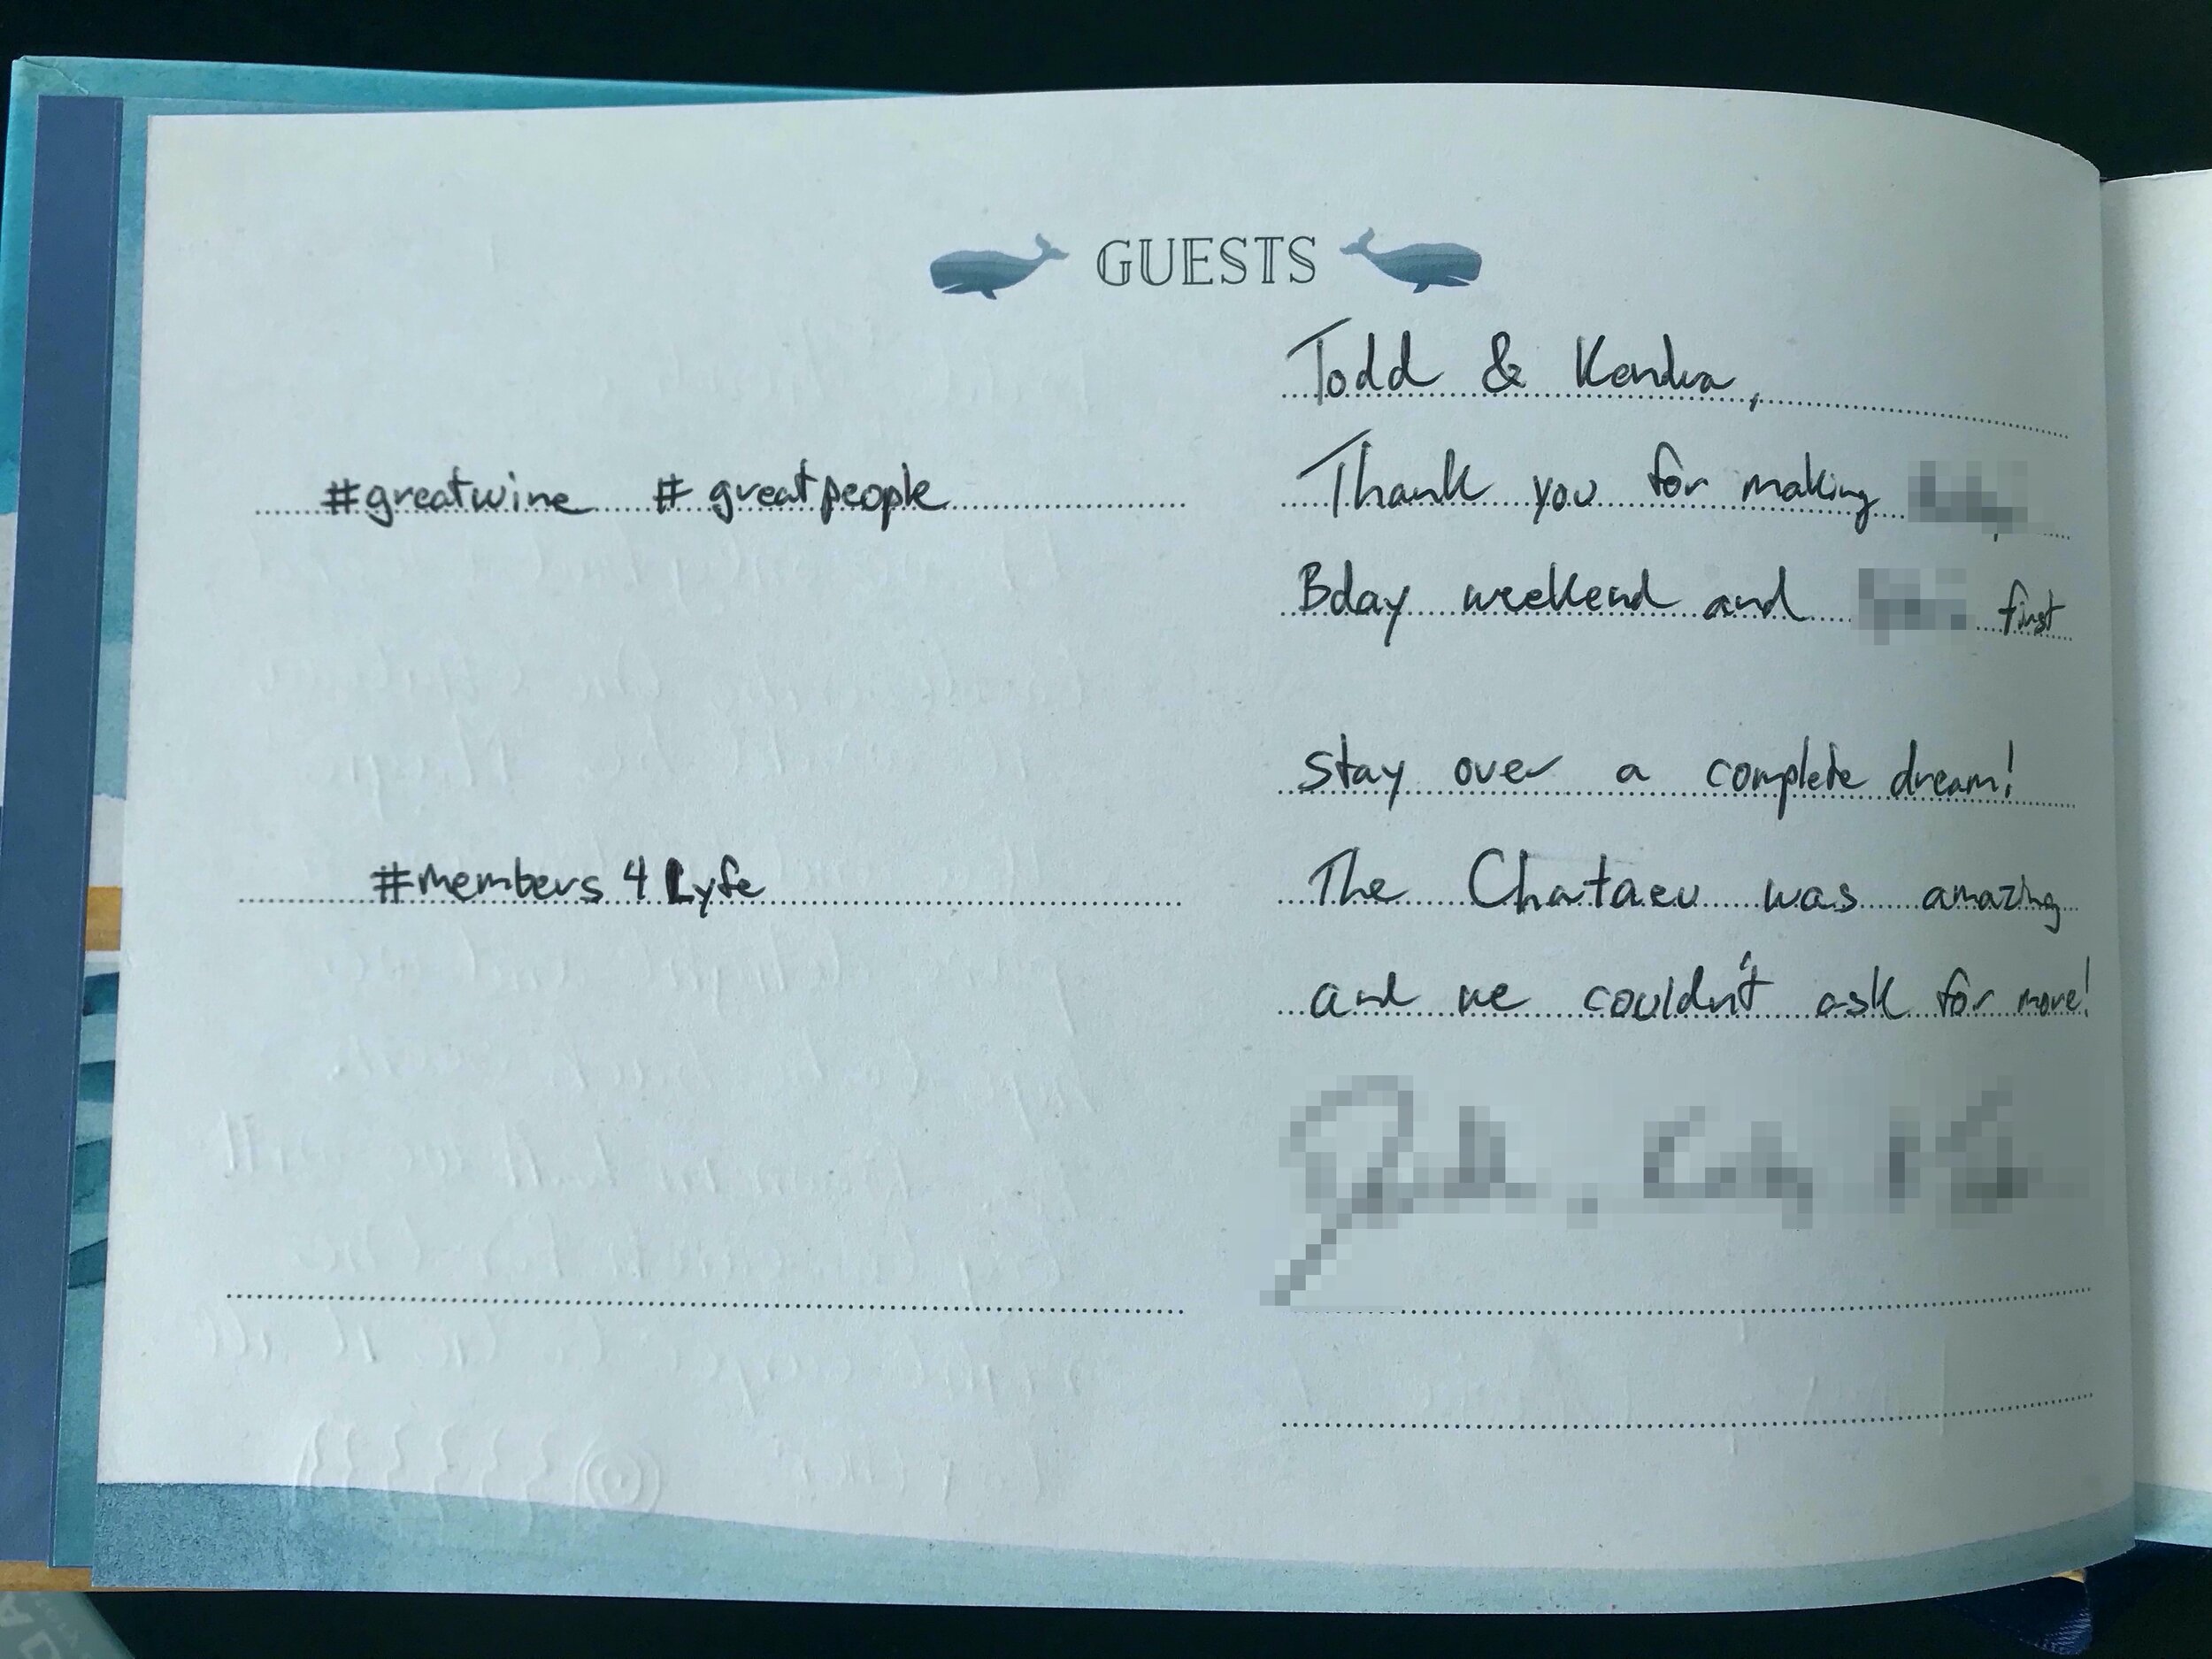 GUESTS
#greatwine #greatpeople
#members4Lyfe
Todd & Kendra,
Thank you for making
Bday weekend and first
stay over a complete dream!
The Chataeu was amazing
and we couldn't ask for more!